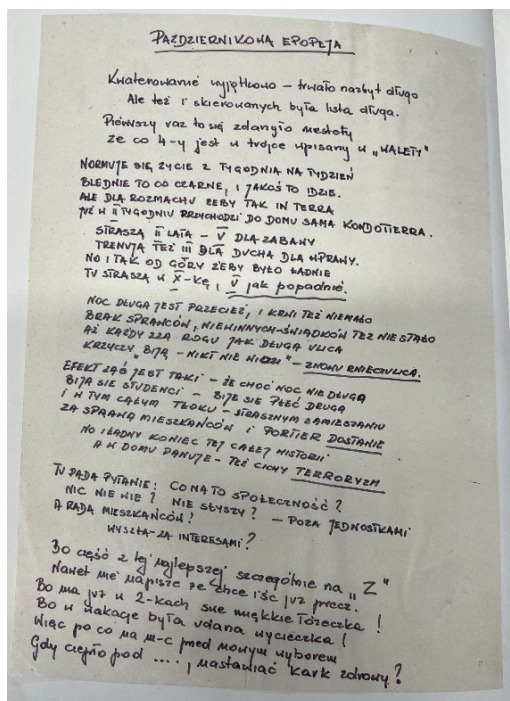 PAŹDZIERNIKOWA EPOPEJA
Kwaterowanie wyjątkowo – trwało nazbyt długo
Ale też i skierowanych była lista długa.
Pierwszy raz to się zdarzyło niestety
że co 4-y jest w trójce wpisany w „WALETY"
NORMUJE SIĘ ŻYCIE Z TYGODNIA NA TYDZIEŃ
BLEDNIE TO CO CZARNE, I JAKOŚ TO IDZIE.
ALE DLA ROZMACHU ŻEBY TAK IN TERRA
JUŻ W II TYGODNIU PRZYCHODZI DO DOMU SAMA KONDOTIERRA.
STRASZĄ II LATA – V DLA ZABAWY
TRENUJĄ TEŻ III DLA DUCHA DLA WPRAWY.
NO I TAK OD GÓRY ŻEBY BYŁO ŁADNIE
TU STRASZĄ W X-KĘ, V jak popadnie.
NOC DŁUGA JEST PRZECIEŻ, I KRWI TEŻ NIEMAŁO
BRAK SPRAWCÓW, NIEWINNYCH-ŚWIADKÓW TEŻ NIE STAŁO
AŻ KAŻDY ZZA ROGU JAK DŁUGA ULICA
KRZYCZY „BIJĄ – NIKT NIE WIDZI" – ZNOWU ZNIECZULICA.
EFEKT ZAŚ JEST TAKI – ŻE CHOĆ NOC NIE DŁUGA
BIJĄ SIĘ STUDENCI – BIJE SIĘ PŁEĆ DRUGA
I W TYM CAŁYM TŁOKU – STRASZNYM ZAMIESZANIU
ZA SPRAWĄ MIESZKAŃCÓW I PORTIER DOSTANIE
NO I ŁADNY KONIEC TEJ CAŁEJ HISTORII
A W DOMU PANUJE – TEŻ CICHY TERRORYZM
TU PADA PYTANIE: CO NA TO SPOŁECZNOŚĆ?
NIC NIE WIE? NIE SŁYSZY? – POZA JEDNOSTKAMI
A RADA MIESZKAŃCÓW!
WYSZŁA-ZA INTERESAMI?
Bo część z tej najlepszej szczególnie na „Z"
Nawet nie napisze że chce iść już precz.
Bo ma już w 2-kach swe miękkie łóżeczka!
Bo w wakacje była udana wycieczka!
Więc po co na m-c przed nowym wyborem
Gdy ciepło pod ...., nastawiać kark zdrowy?